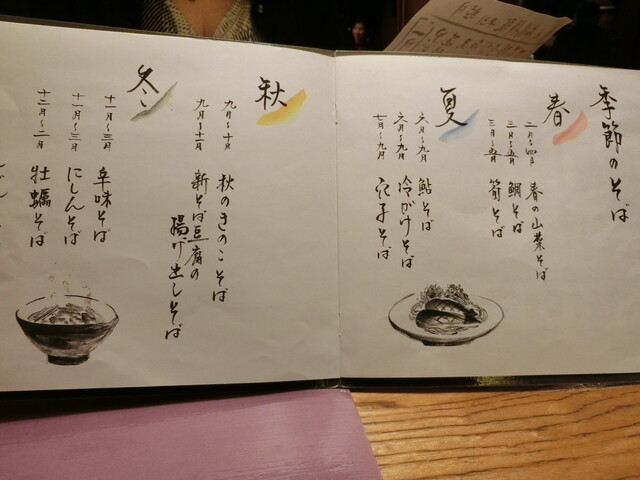 季節のそば
春
二月〜四月 春の山菜そば
三月〜五月 鯛そば
三月〜五月 筍そば
夏
六月〜九月 鮎そば
六月〜九月 冷がけそば
七月〜九月 茄子そば
秋
九月〜十月 秋のきのこそば
九月〜十一月 新そば豆腐の
揚げ出しそば
冬
十一月〜三月 辛味そば
十一月〜三月 にしんそば
十二月〜二月 牡蠣そば